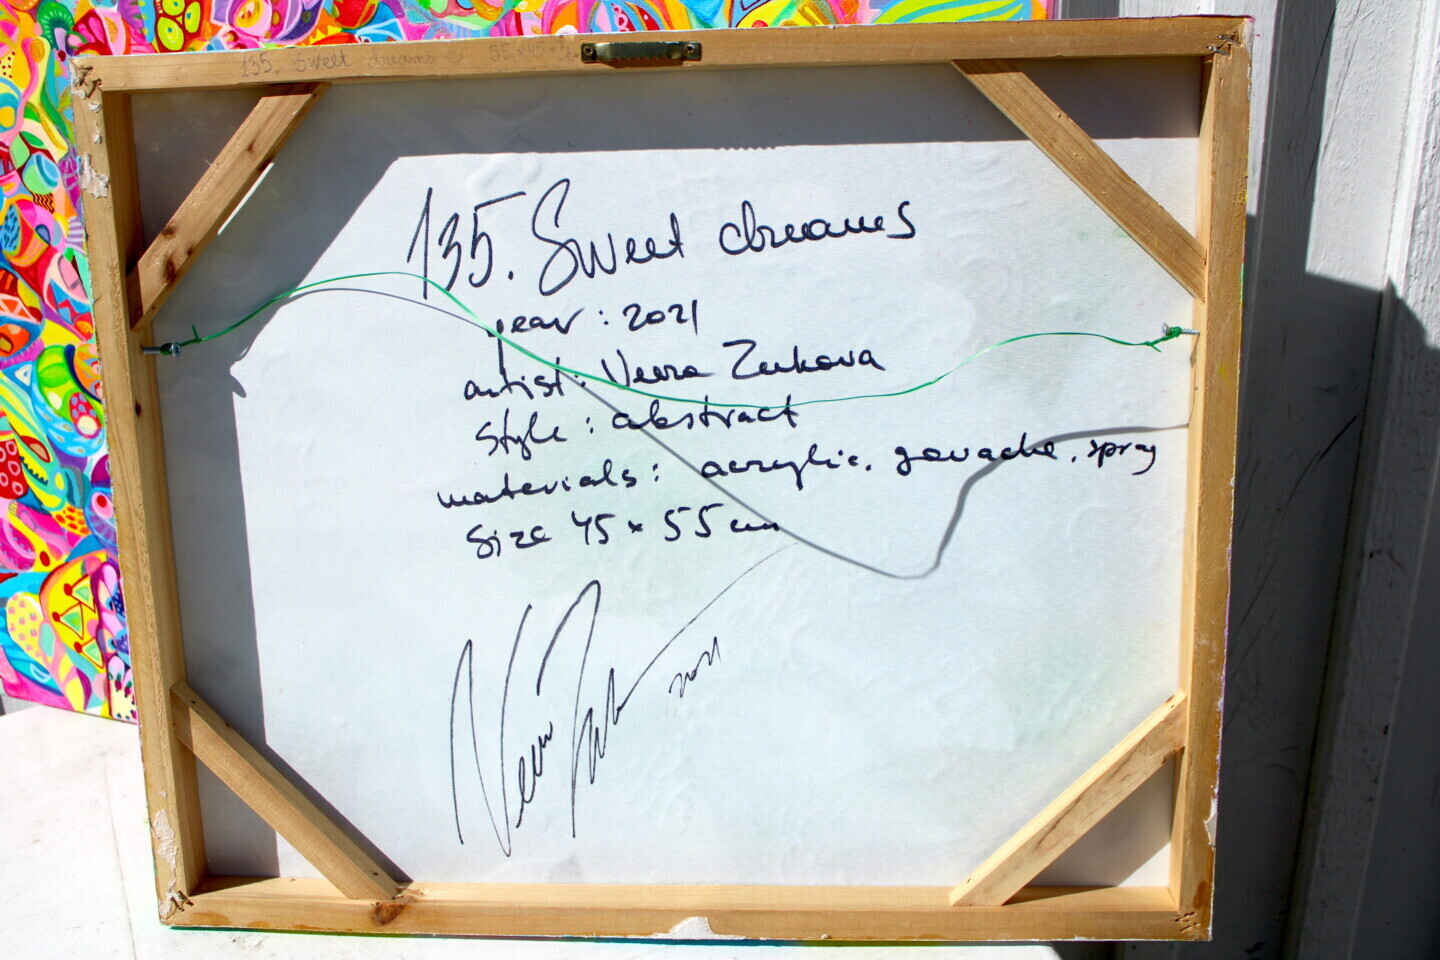 135. Sweet dreams 55×45×3
135. Sweet dreams
year: 2021
artist: Veera Zukova
style: abstract
materials: acrylic, gouache, spray
Size 45 × 55 cm
2021